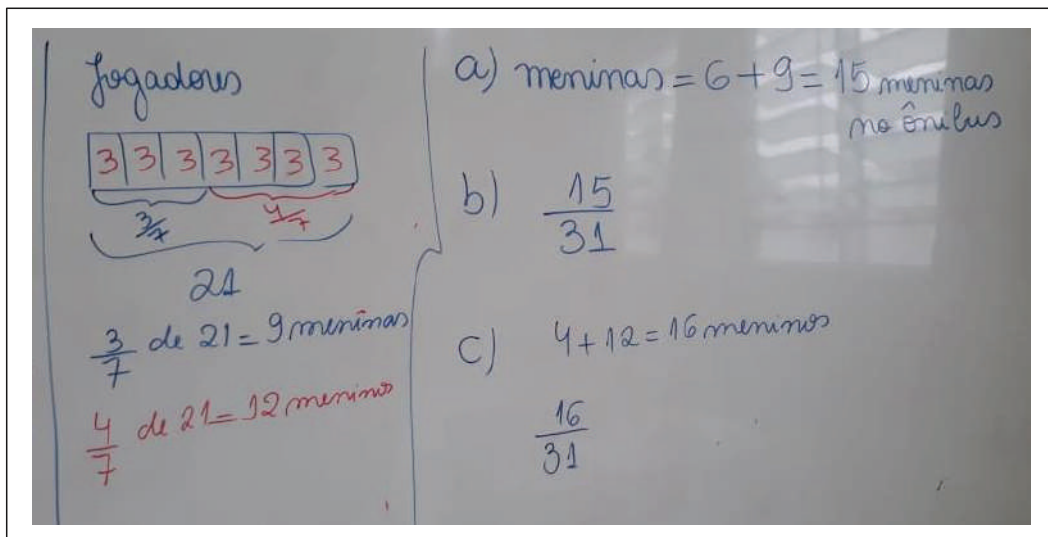 Jogadores
3 3 3 3 3 3 3
3/7 4/7
21
3/7 de 21 = 9 meninas
4/7 de 21 = 12 meninos
a) meninas = 6 + 9 = 15 meninas
no ônibus
b) 15/31
c) 4 + 12 = 16 meninos
16/31